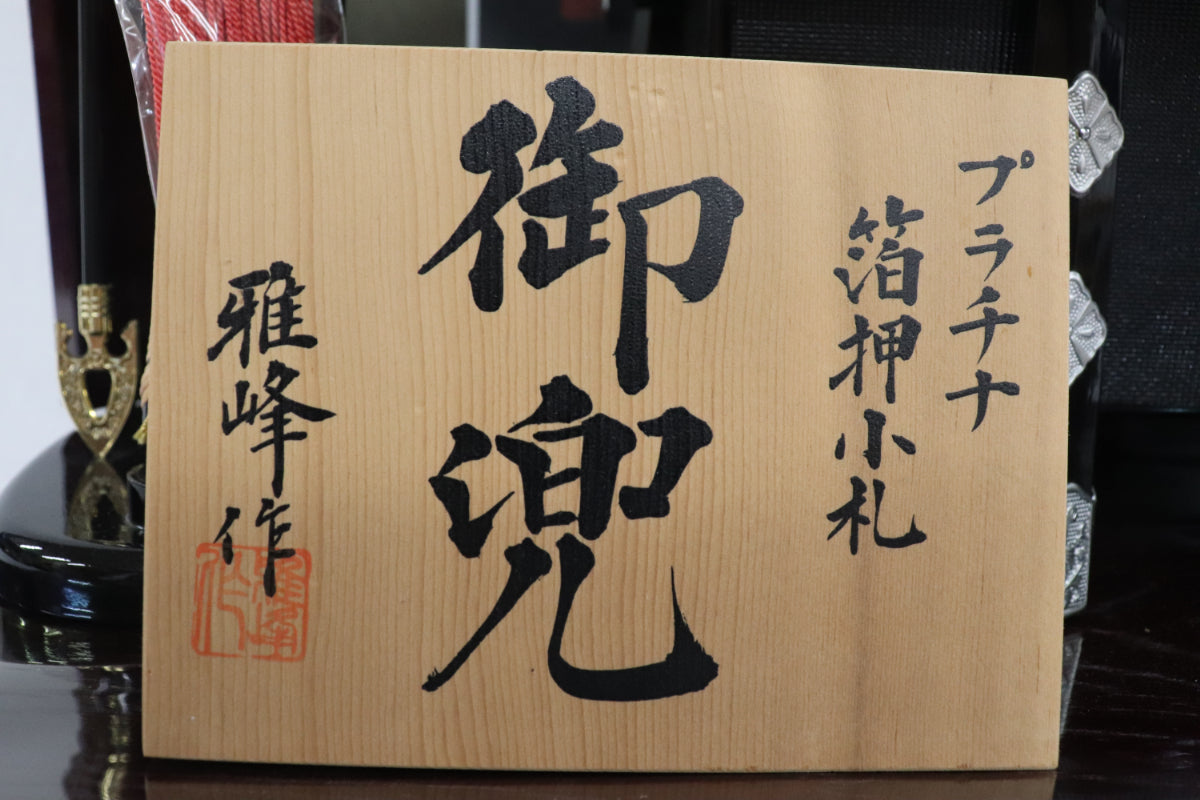 プラチナ
箔押小札
御兜
雅峰作